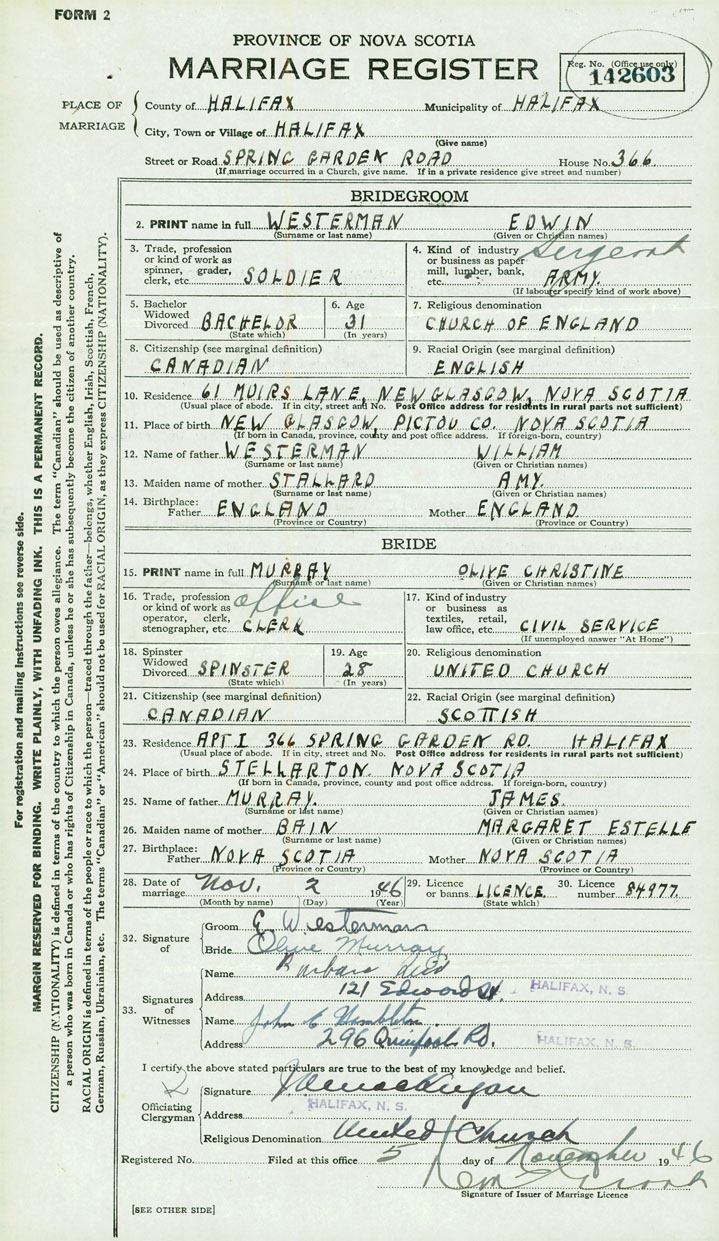 FORM 2
PROVINCE OF NOVA SCOTIA
MARRIAGE REGISTER
Reg. No. (Office use only)
142603
PLACE OF MARRIAGE
County of HALIFAX Municipality of HALIFAX
City, Town or Village of HALIFAX
(Give name)
Street or Road SPRING GARDEN ROAD House No. 366
(If marriage occurred in a Church, give name. If in a private residence give street and number)
BRIDEGROOM
2. PRINT name in full WESTERMAN EDWIN
(Surname or last name) (Given or Christian names)
3. Trade, profession or kind of work as spinner, grader, clerk, etc. SOLDIER
4. Kind of industry or business as paper mill, lumber, bank, etc. Sergeant ARMY.
(If labourer specify kind of work above)
5. Bachelor Widowed Divorced BACHELOR
(State which)
6. Age 31
(In years)
7. Religious denomination
CHURCH OF ENGLAND
8. Citizenship (see marginal definition)
CANADIAN
9. Racial Origin (see marginal definition)
ENGLISH
10. Residence 61 MUIRS LANE, NEW GLASGOW, NOVA SCOTIA
(Usual place of abode. If in city, street and No. Post Office address for residents in rural parts not sufficient)
11. Place of birth NEW GLASGOW, PICTOU CO. NOVA SCOTIA
(If born in Canada, province, county and post office address. If foreign-born, country)
12. Name of father WESTERMAN WILLIAM
(Surname or last name) (Given or Christian names)
13. Maiden name of mother STALLARD AMY.
(Surname or last name) (Given or Christian names)
14. Birthplace: Father ENGLAND Mother ENGLAND
(Province or Country) (Province or Country)
BRIDE
15. PRINT name in full MURRAY OLIVE CHRISTINE
(Surname or last name) (Given or Christian names)
16. Trade, profession or kind of work as operator, clerk, stenographer, etc. office CLERK
17. Kind of industry or business as textiles, retail, law office, etc. CIVIL SERVICE
(If unemployed answer "At Home")
18. Spinster Widowed Divorced SPINSTER
(State which)
19. Age 28
(In years)
20. Religious denomination
UNITED CHURCH
21. Citizenship (see marginal definition)
CANADIAN
22. Racial Origin (see marginal definition)
SCOTTISH
23. Residence APT I 366 SPRING GARDEN RD. HALIFAX
(Usual place of abode. If in city, street and No. Post Office address for residents in rural parts not sufficient)
24. Place of birth STELLARTON. NOVA SCOTIA
(If born in Canada, province, county and post office address. If foreign-born, country)
25. Name of father MURRAY. JAMES.
(Surname or last name) (Given or Christian names)
26. Maiden name of mother BAIN MARGARET ESTELLE
(Surname or last name) (Given or Christian names)
27. Birthplace: Father NOVA SCOTIA Mother NOVA SCOTIA
(Province or Country) (Province or Country)
28. Date of marriage Nov. 2 1946
(Month by name) (Day) (Year)
29. Licence or banns LICENCE
(State which)
30. Licence number 84977.
32. Signature of
Groom E Westerman
Bride Olive Murray
33. Signatures of Witnesses
Name Barbara
Address 121 Edward St. HALIFAX, N. S.
Name John C
Address 296 Quinpool Rd. HALIFAX, N. S.
I certify the above stated particulars are true to the best of my knowledge and belief.
Officiating Clergyman
Signature
Address HALIFAX, N. S.
Religious Denomination United Church
Registered No. Filed at this office 5 day of November 1946
Signature of Issuer of Marriage Licence
[SEE OTHER SIDE]
For registration and mailing instructions see reverse side.
MARGIN RESERVED FOR BINDING. WRITE PLAINLY, WITH UNFADING INK. THIS IS A PERMANENT RECORD.
CITIZENSHIP (NATIONALITY) is defined in terms of the country to which the person owes allegiance. The term "Canadian" should be used as descriptive of
a person who was born in Canada or who has rights of Citizenship in Canada, unless he or she has subsequently become the citizen of another country.
RACIAL ORIGIN is defined in terms of the people or race to which the person—traced through the father—belongs, whether English, Irish, Scottish, French,
German, Russian, Ukrainian, etc. The terms "Canadian" or "American" should not be used for RACIAL ORIGIN, as they express CITIZENSHIP (NATIONALITY).